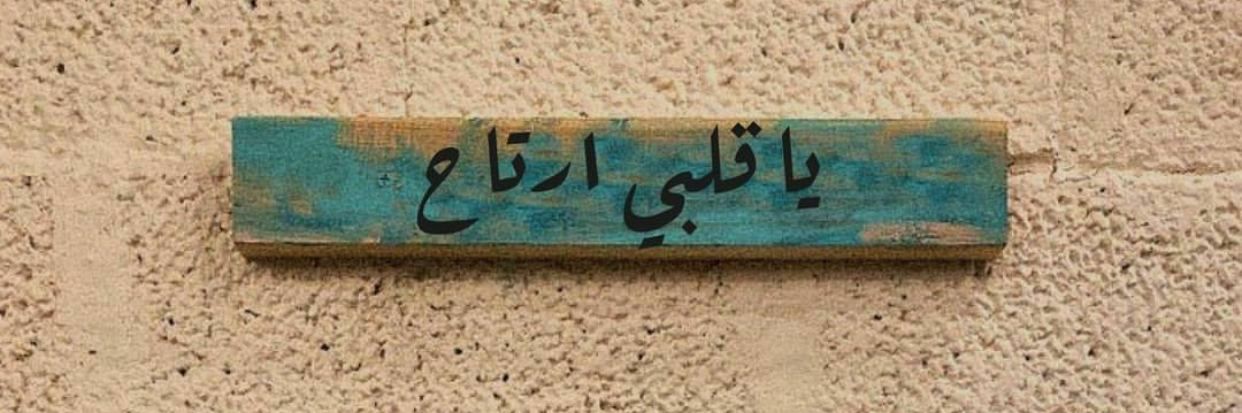 يا قلبي ارتاح